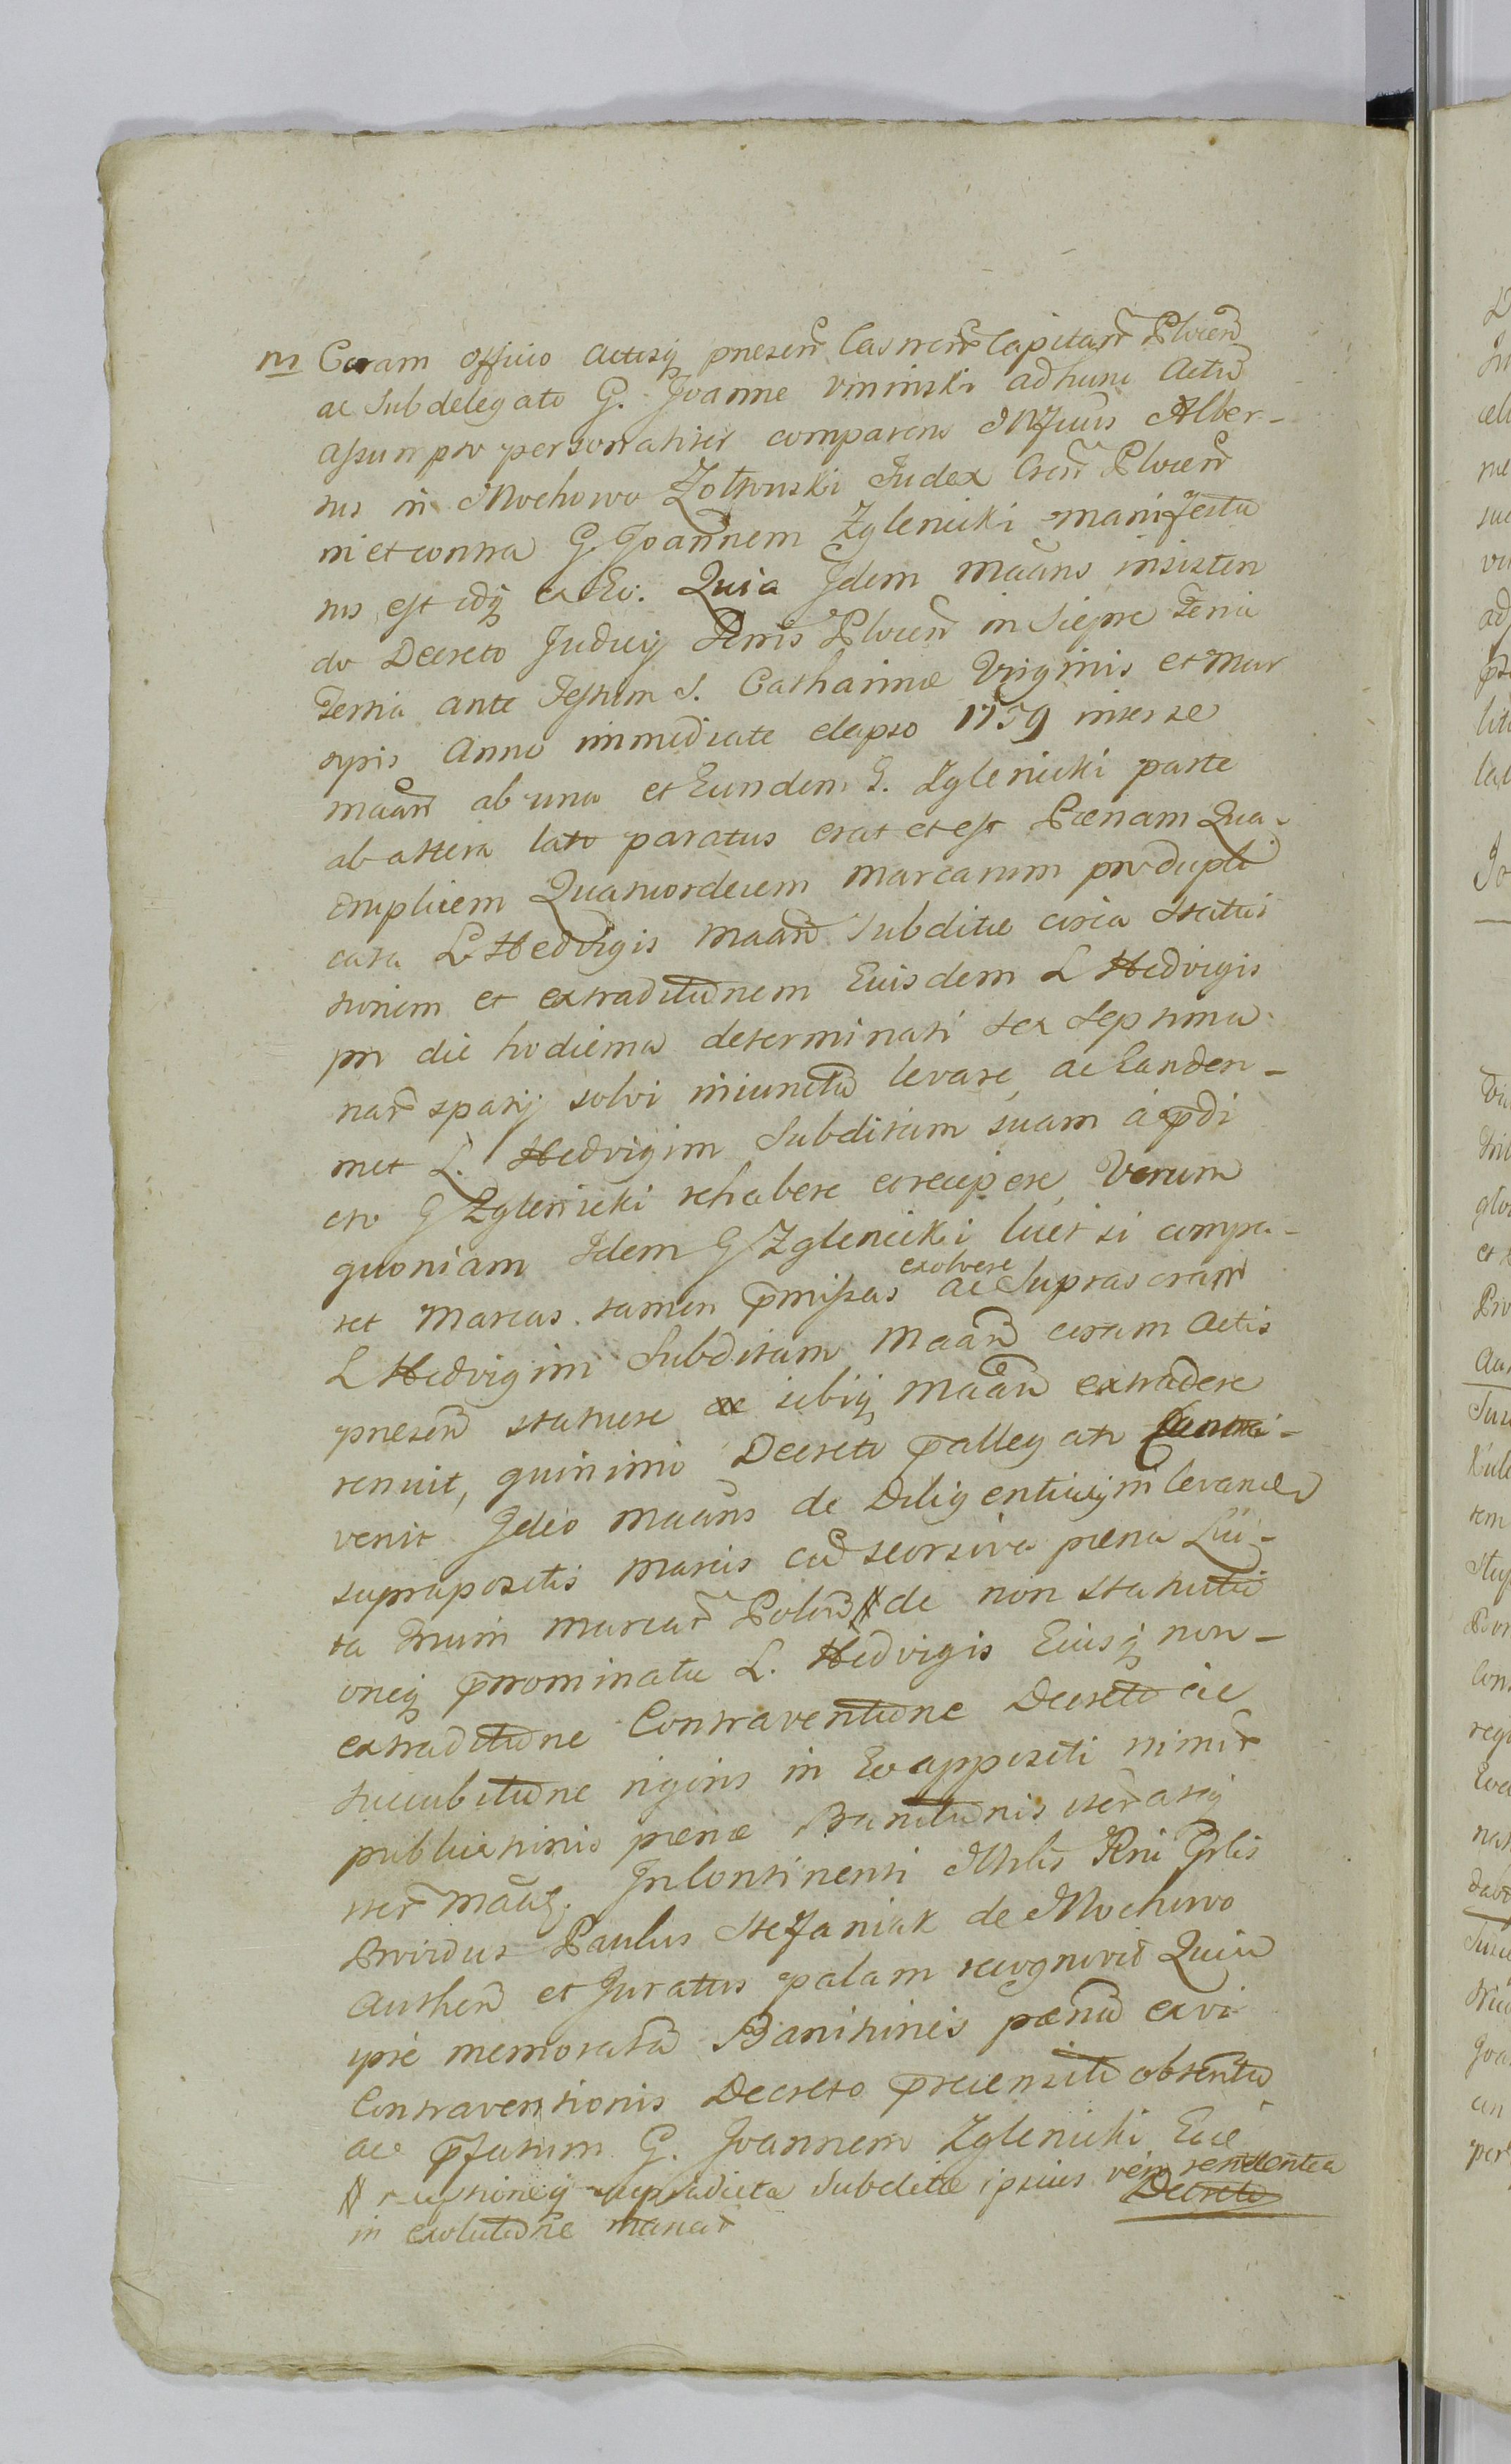 m Coram Officio Actisq presen Castren Capitan Plocen
ac Subdelegato G. Joanne Uminski ad hunc Actu
assumpto personaliter comparens Mfcus Alber-
tus in Mochowo Zołtowski Judex Cren Plocen
in et contra G. Joannem Zglenicki manifestu
tus est idq ex Eo. Quia Idem Maans insisten
do Decreto Judicij Terris Plocen in Sieprc Feria
Tertia ante Festum S. Catharinæ Virginis et Mar
tyris Anno immediate elapso 1759 inter se
maan ab una et Eundem G. Zglenicki parte
ab altera lato paratus erat et est Pœnam Qua-
druplicem Quatuordecem marcarum pro dupli
cata L Hedvigis Maan Subditæ circa Statui
tionem et extraditionem Eiusdem L Hedvigis
pro die hodierna determinati sex septima
nar spatij solvi iniunctã levare, ac Eanden-
met L. Hedvigim Subditam suam a pdi
cto G Zglenicki rehabere et recipere, Verum
quoniam Idem G Zglenicki licet si compa-
ret Marcas tamen pmissas exolvere ac Supras cram
L Hedvigim Subditam Maan coram Actis
presen statuere sibiq Maan extradere
renuit, quinimo Decreto pallegato Contra-
venit Ideo Maans de Diligentia in levand
suprapositis Marcis cũ seorsiva pœna Lui-
ta trium marcar Polon # de non statuti
oneq pnominatæ L. Hedvigis Eiusq non-
extraditione Contraventione Decreto ac
succubitione rigoris in Eo appositi nimir
publicationis pœnæ Banitionis iteratq
iter maus. In Continenti Mnlis Rni Gnlis
Providus Paulus Stefaniak de Mochowo
Authen et Juratus palam recognovit Quia
ipse memoratã Banitionis pœnã ex vi
Contraventionis Decreto precensito obtentã
ac pfatum G. Joannem Zglenicki Ea
# rsupradicta Subditæ ipsius renitentia
in exolutione marcar
Decreto